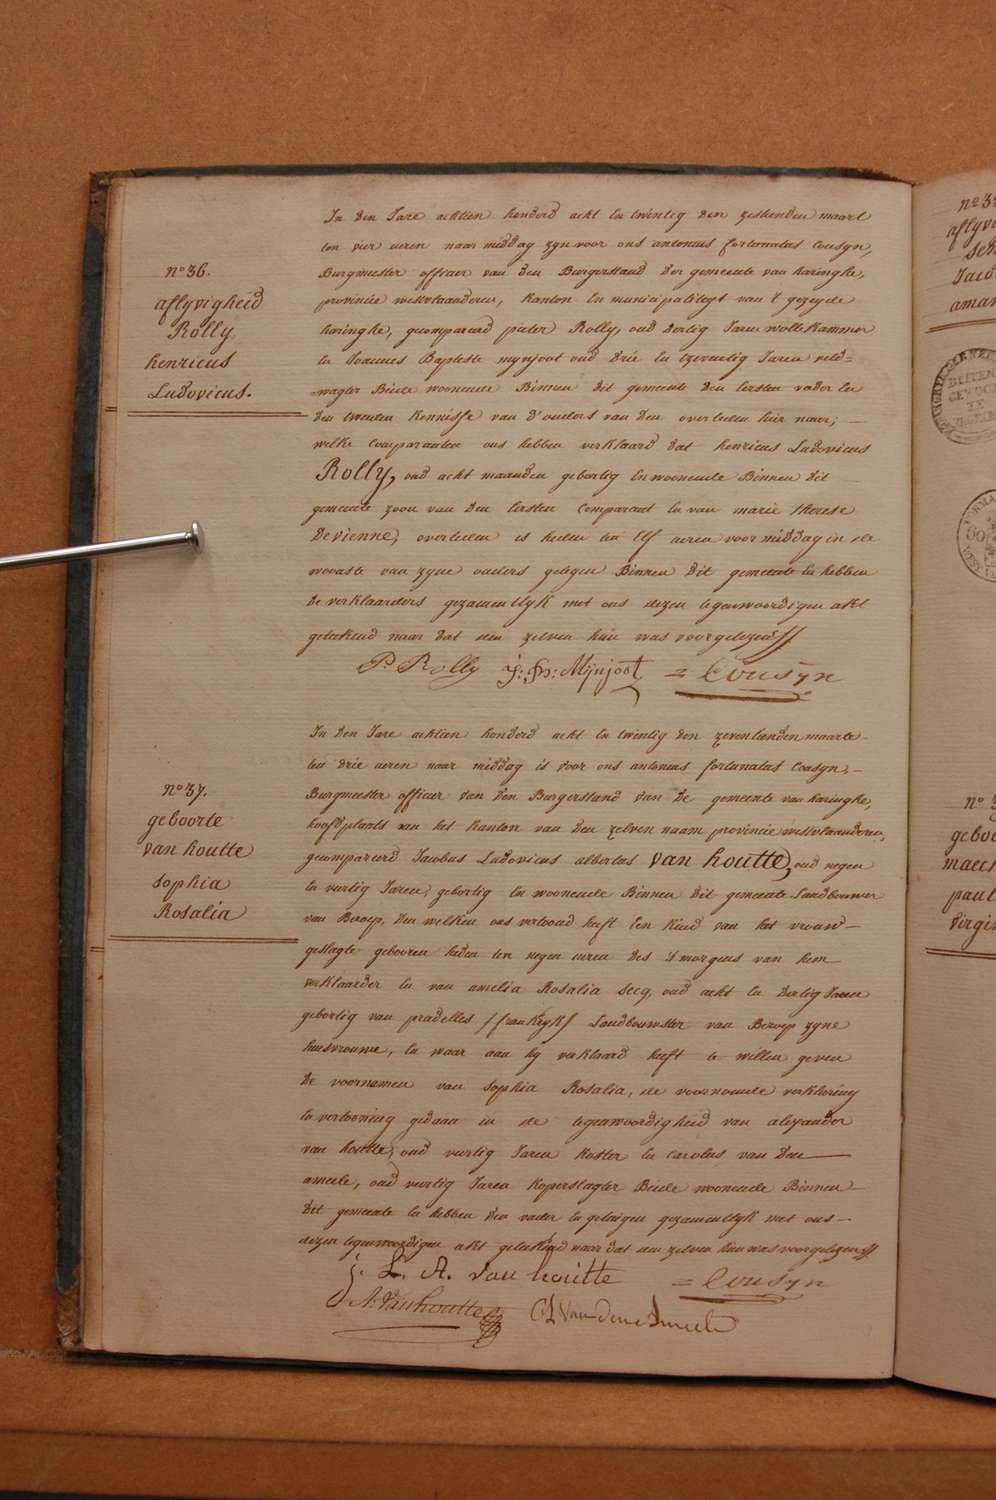 n° 36.
aflyvigheid
Rolly
henricus
Ludovicus.
In den Jare achtien honderd acht en twintig den zestienden maart
ten vier ueren naar middag zyn voor ons antonius fortunatus Cousyn,
Burgmeester officier van den Burgerstand der gemeente van haringhe,
provincie westvlaanderen, kanton en municipaliteyt van 't gezeyde
haringhe, gecompareerd pieter Rolly, oud dertig Jaren wollekammer
en Joannes Baptiste mynjoot oud drie en tzeventig Jaren veld=
wagter Beide woonende Binnen dit gemeente den eersten vader en
den tweeden kennisse van d'ouders van den overleden hier naer;
welke Comparanten ons hebben verklaard dat henricus Ludovicus
Rolly, oud acht maanden gebortig en woonende Binnen dit
gemeente zoon van den eersten comparant en van marie therese
Devienne, overleden is heden ten elf ueren voormiddag in de
wooaste van zyne ouders gelegen Binnen dit gemeente en hebben
de verklaarders gezamentlyk met ons dezen tegenwoordigen akt
geteekend naar dat een zelven hun was voorgelezen //
P. Rolly J: Bp: Mijnjoot = Cousyn
n° 37.
geboorte
van houtte
sophia
Rosalia
In den Jare achtien honderd acht en twintig den zeventienden maarte
ten drie ueren naar middag is voor ons antonius fortunatus Cousyn,
Burgmeester officier van den Burgerstand van de gemeente van haringhe,
hoofdplaats van het kanton van den zelven naam provincie westvlaanderen,
gecompareerd Jacobus Ludovicus albertus van houtte, oud negen
en viertig Jaren, gebortig en woonende Binnen dit gemeente Landbouwer
van Beroep, den welken ons vertoond heeft een kind van het vrouw-
geslagte gebooren heden ten negen ueren des s'morgens van hem
verklaarder en van amelia Rosalia secq, oud acht en dertig Jaren
gebortig van pradelles /frankryk/ Landbouwster van Beroep zyne
huisvrouwe, en waar aan hy verklaard heeft te willen geven
de voornamen van sophia Rosalia, de voornoemde verklaring
en vertooning gedaan in de tegenwoordigheid van alexander
van houtte, oud viertig Jaren koster en carolus van den
ameele, oud viertig Jaren koperslagter Beide woonende Binnen
dit gemeente en hebben den vader en getuigen gezamentlyk met ons
dezen tegenwoordigen akt geteekend naar dat een zelven hun was voorgelezen //
j. L. A. van houtte = Cousyn
A. Vanhoutte C L Van Den Ameele
n° 3
aflyvi
Jaco
aman
BUITEN
n° 3
geboo
maes
paul
virgin